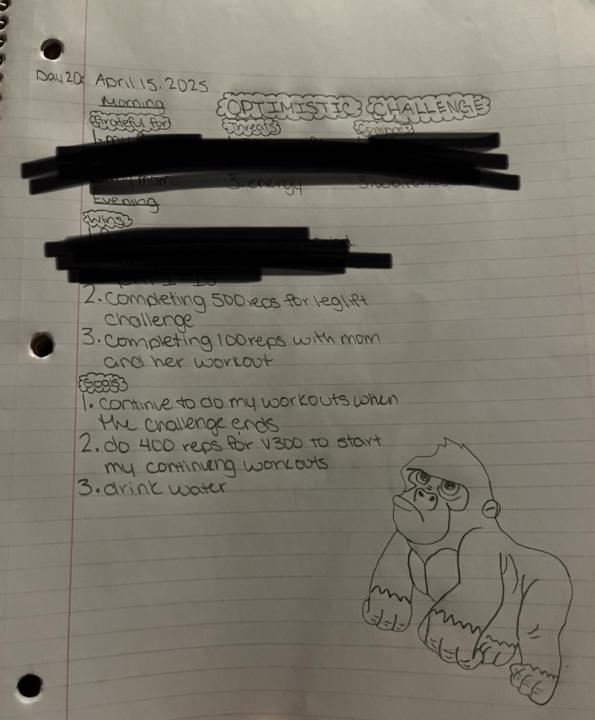 Day 20: April 15, 2025
Morning
OPTIMISTIC CHALLENGE
Grateful for
Threats
Combats
mom
3. energy
Evening
Wins
2. completing 500 reps for leg lift
challenge
3. completing 100 reps with mom
and her workout
Goals
1. continue to do my workouts when
the challenge ends
2. do 400 reps for V300 to start
my continueng workouts
3. drink water